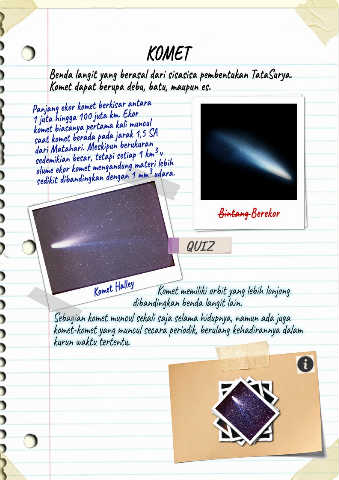 KOMET
Benda langit yang berasal dari sisasisa pembentukan TataSurya.
Komet dapat berupa debu, batu, maupun es.
Panjang ekor komet berkisar antara
1 juta hingga 100 juta km. Ekor
komet biasanya pertama kali muncul
saat komet berada pada jarak 1,5 SA
dari Matahari. Meskipun berukuran
sedemikian besar, tetapi setiap 1 km³ v
olume ekor komet mengandung materi lebih
sedikit dibandingkan dengan 1 mm³ udara.
Bintang Berekor
QUIZ
Komet Halley
Komet memiliki orbit yang lebih lonjong
dibandingkan benda langit lain.
Sebagian komet muncul sekali saja selama hidupnya, namun ada juga
komet-komet yang muncul secara periodik, berulang kehadirannya dalam
kurun waktu tertentu.
i